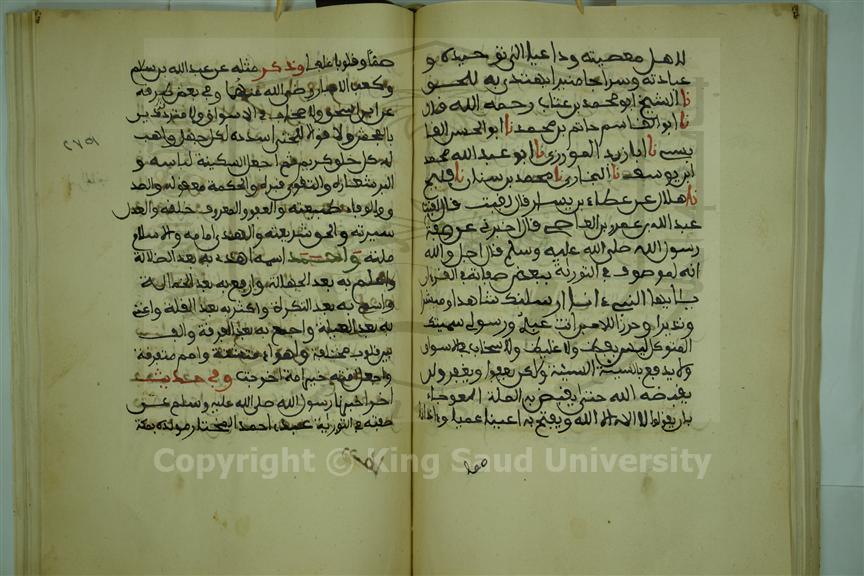 لاهل معصيته وداعيا الى توحيده و
عبادته وسراجا منيرا يهتدى به للحق
نا الشيخ ابو محمد بن عتاب رحمه الله قال
نا ابو القاسم حاتم بن محمد نا ابو الحسن القا
بسى نا ابو زيد المروزى نا ابو عبد الله محمد
ابن يوسف نا البخارى نا محمد بن سنان نا فليح
نا هلال عن عطاء بن يسار قال لقيت
عبد الله بن عمرو بن العاصى قال اخبرنى عن صفة
رسول الله صلى الله عليه وسلم قال اجل والله
انه لموصوف فى التورية ببعض صفاته فى القرءان
يا ايها النبىء انا ارسلناك شاهدا ومبشرا
ونذيرا وحرزا للاميين انت عبدى ورسولى سميتك
المتوكل ليس بفظ ولا غليظ ولا سخاب فى الاسواق
ولا يدفع بالسيئة السيئة ولاكن يعفوا ويغفر ولن
يقبضه الله حتى يقيم به الملة العوجاء
بان يقولوا لا اله الا الله ويفتح به اعينا عميا وءاذانا
صما وقلوبا غلفا وذكر مثله عن عبد الله بن سلام
وكعب الاحبار رضى الله عنهما وفى بعض طرقه
عن ابن اسحق ولا صخاب فى الاسواق ولا متزين
بالفحش ولا قوال للخنى اسدده لكل جميل واهب
له كل خلق كريم ثم اجعل السكينة لباسه و
البر شعاره والتقوى ضميره والحكمة معقوله والصد
ق والوفاء طبيعته والعفو والمعروف خلقه والعدل
سيرته والحق شريعته والهدى امامه والاسلام
ملته واحمد اسمه اهدى به بعد الضلالة
واعلم به بعد الجهالة وارفع به بعد الخمالة
واسمى به بعد النكرة واكثر به بعد القلة واغنى
به بعد العيلة واجمع به بعد الفرقة والف به
بين قلوب مختلفة واهواء متشتتة وامم متفرقة
واجعل امته خير امة اخرجت وفى حديث
اخر اخبرنا رسول الله صلى الله عليه وسلم عن
صفته فى التورية عبدى احمد المختار مولده بمكة
Copyright © King Saud University